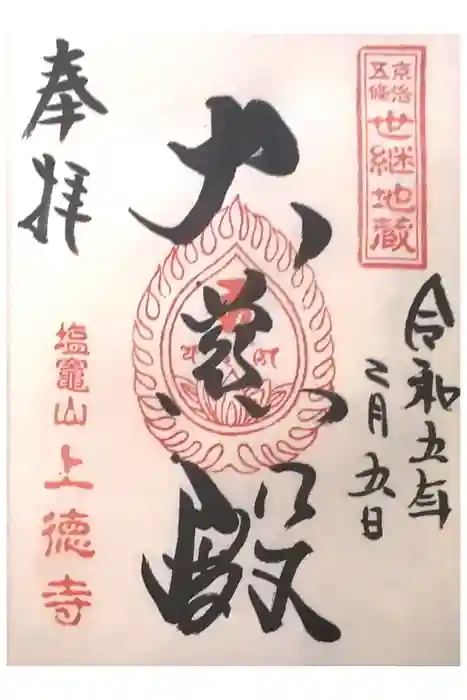 京洛五條
世継地蔵
令和五年
二月五日
大慈殿
奉拝
塩竈山上徳寺